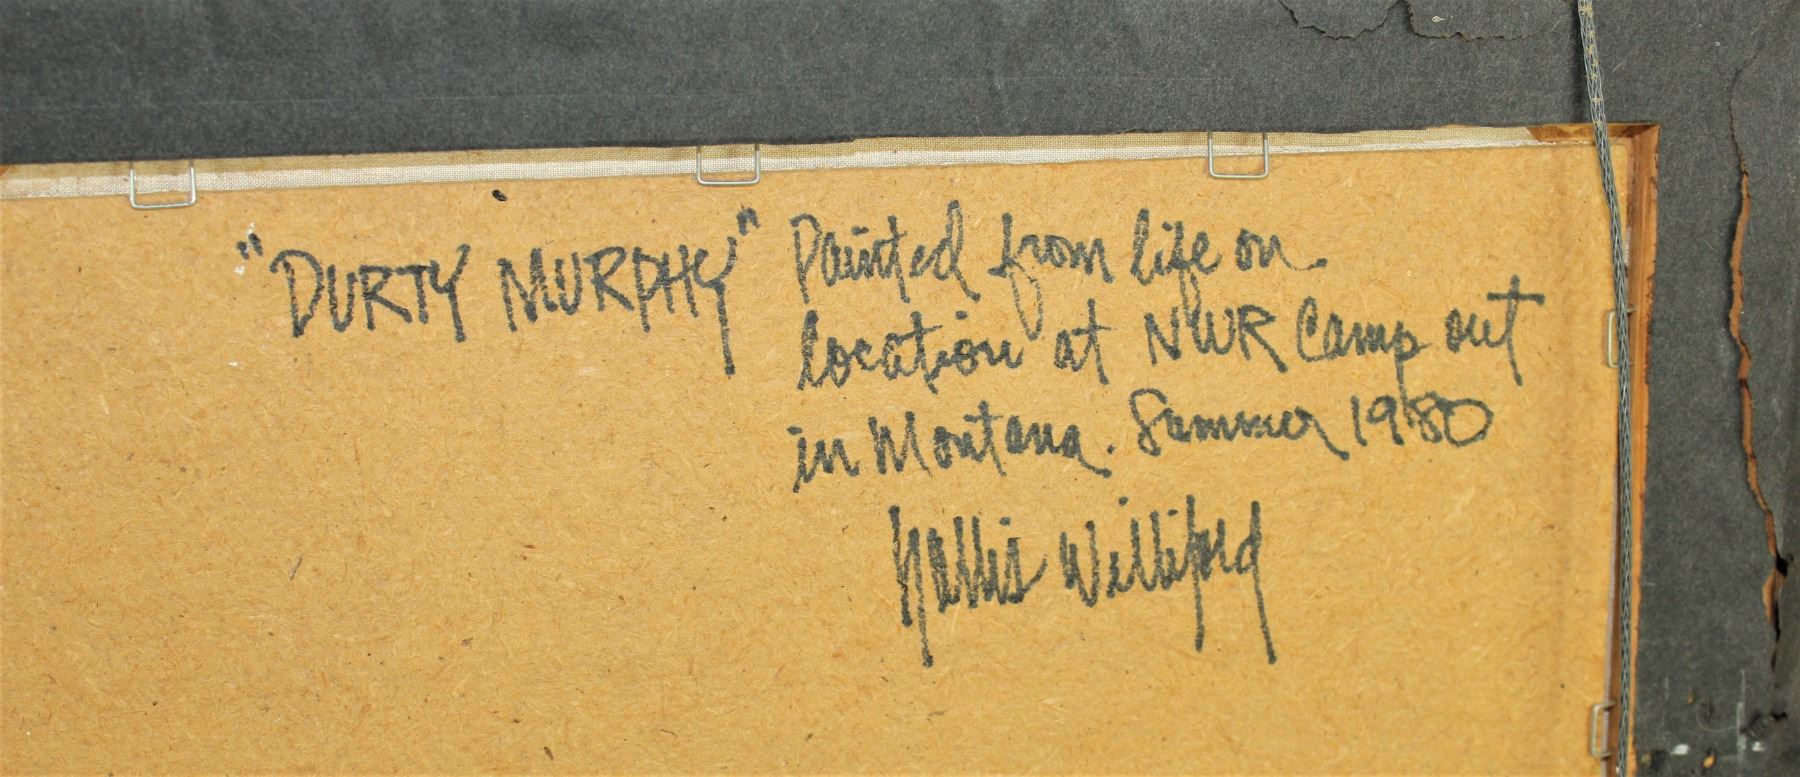 "DURTY MURPHY" Painted from life on
location at NWR Camp out
in Montana. Summer 1980
Hollis Williford